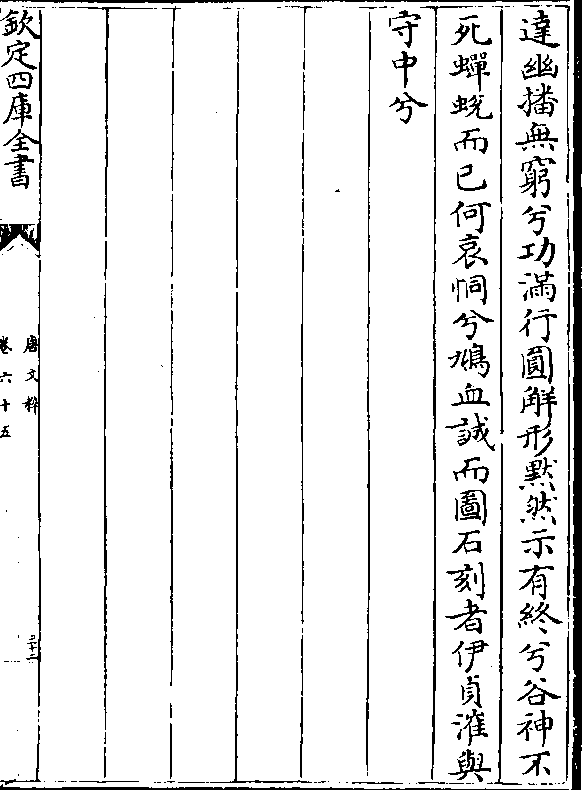 達幽播無窮兮功滿行圓解形黙然示有終兮谷神不
死蟬蛻而已何哀恫兮鳩血誠而圖石刻者伊貞漼與
守中兮
欽定四庫全書
唐文粹
卷六十五
三十二